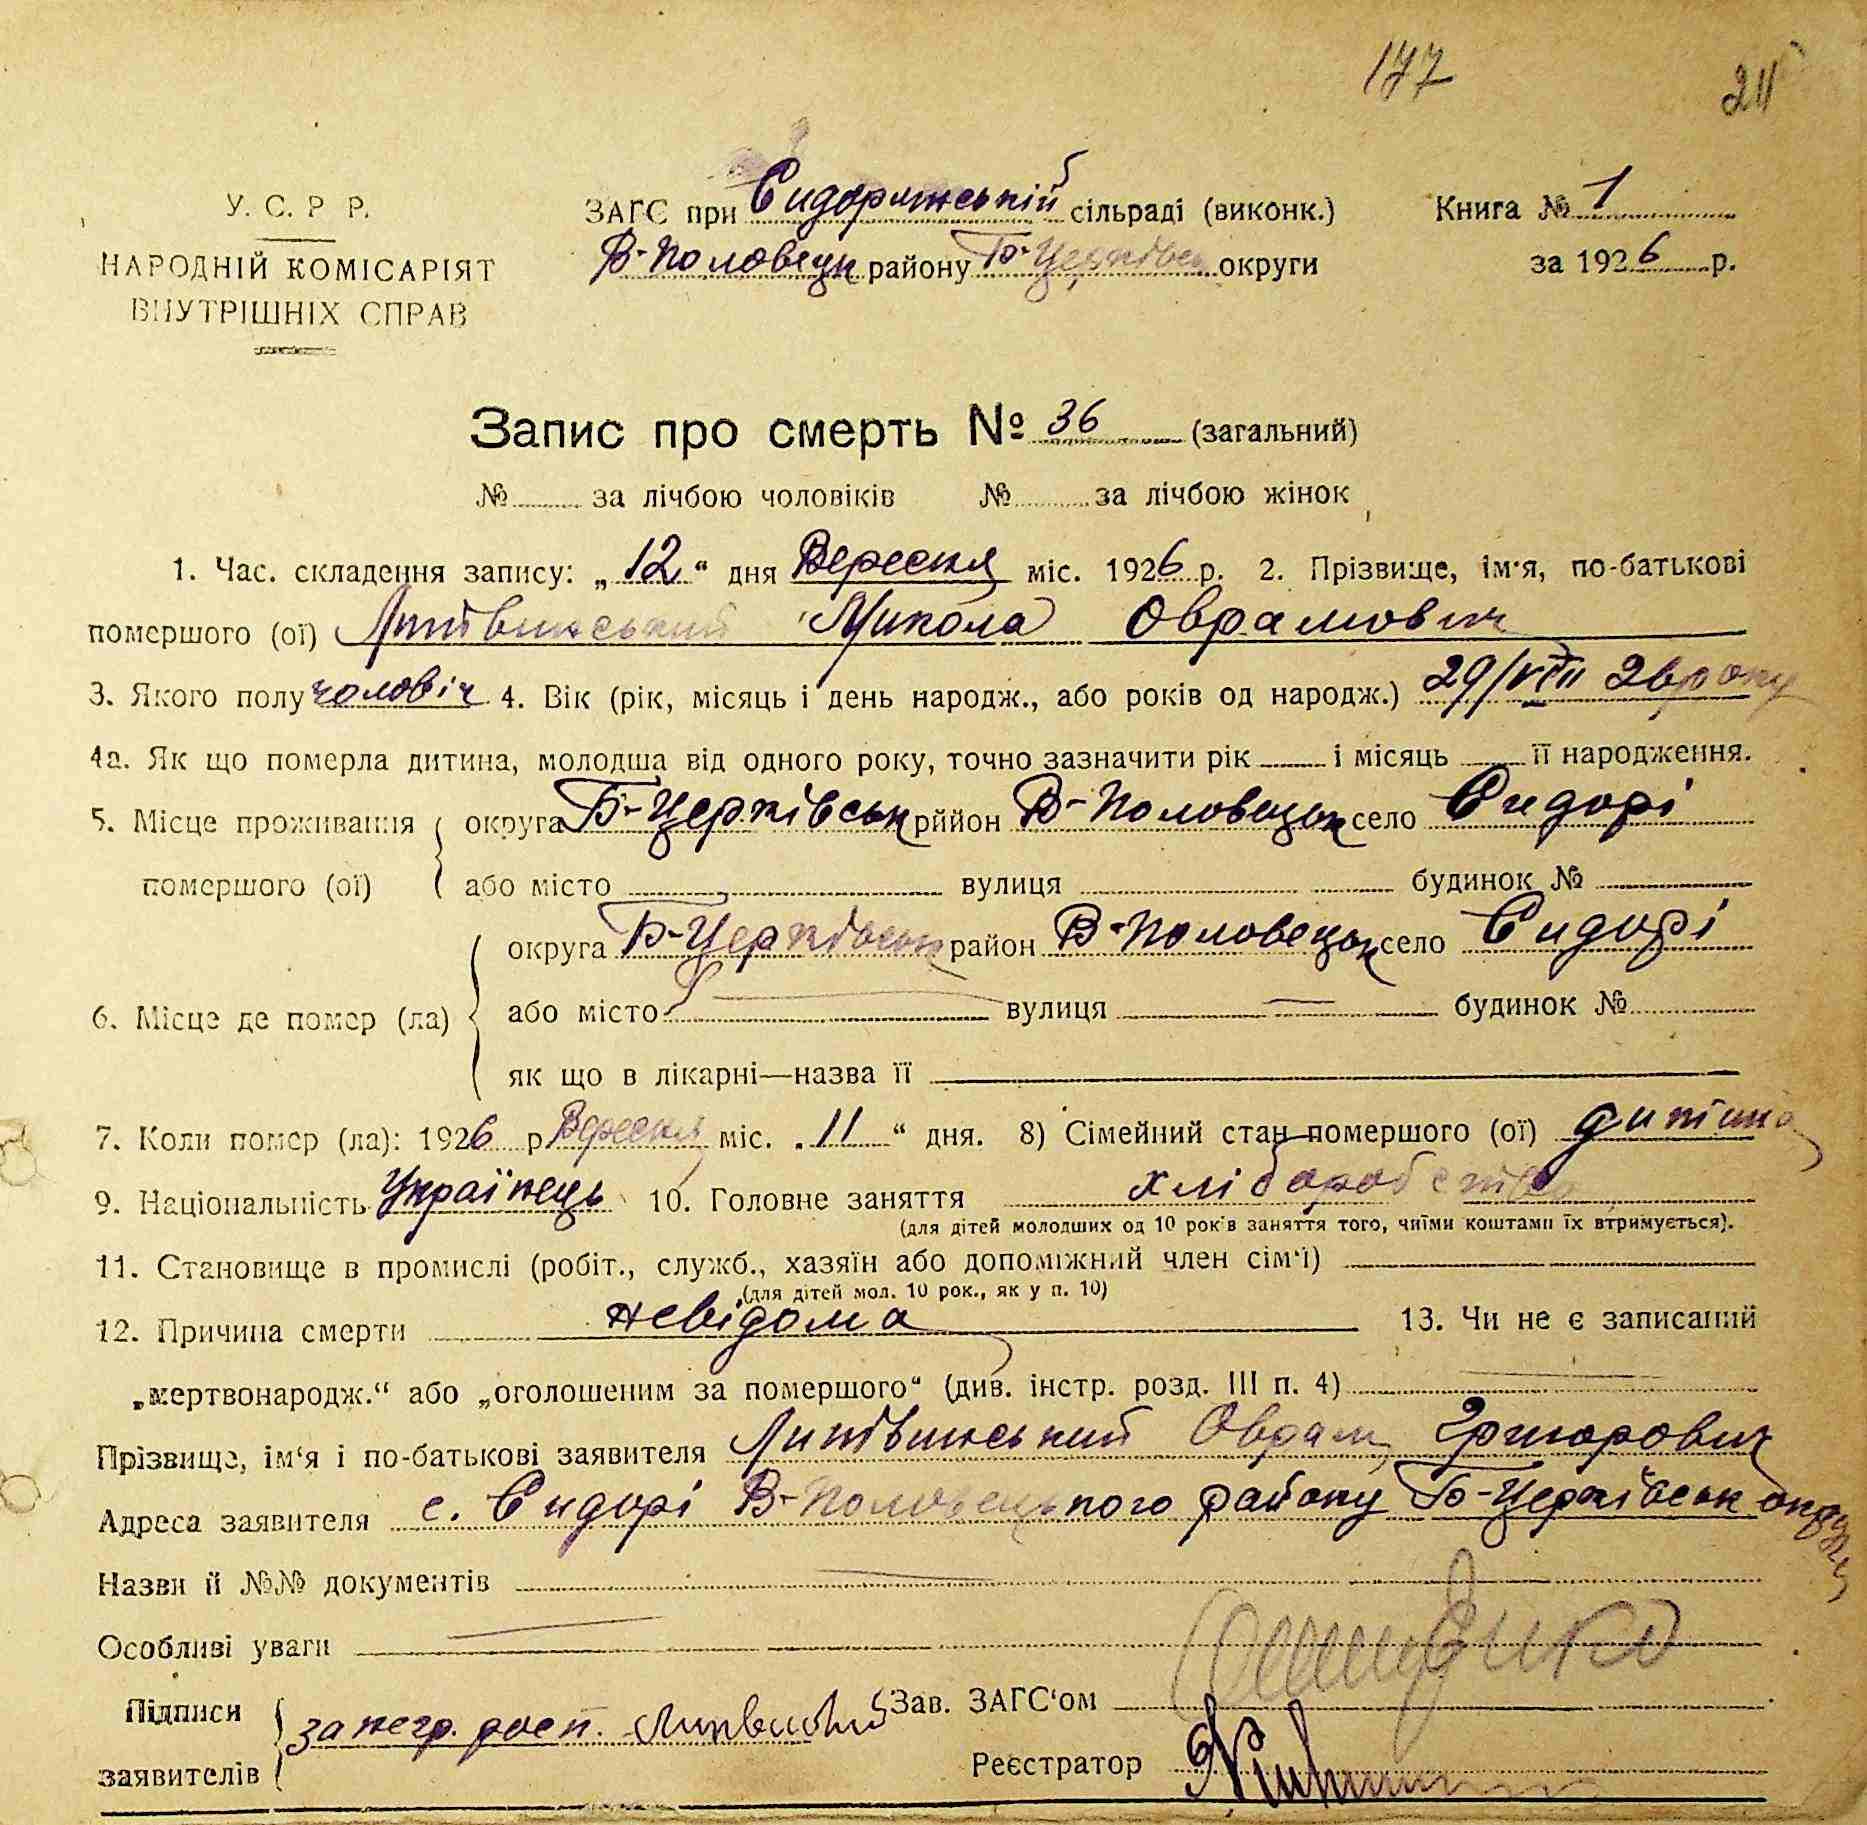 177 211
У. С. Р Р.
НАРОДНІЙ КОМІСАРІЯТ
ВНУТРІШНІХ СПРАВ
ЗАГС при Сидорянській сільраді (виконк.)
В-Половецьк району Б-Церківськ округи
Книга № 1
за 1926 р.
Запис про смерть № 36 (загальний)
№ за лічбою чоловіків № за лічбою жінок
1. Час. складення запису: „12“ дня Вересня міс. 1926 р. 2. Прізвище, ім'я, по-батькові
помершого (ої) Литвинський Микола Оврамович
3. Якого полу чоловіч 4. Вік (рік, місяць і день народж., або років од народж.) 29/VIII 26 року
4а. Як що померла дитина, молодша від одного року, точно зазначити рік і місяць її народження.
5. Місце проживання помершого (ої) округа Б-Церківськ рййон В-Половецьк село Сидорі
або місто вулиця будинок №
6. Місце де помер (ла) округа Б-Церківськ район В-Половецьк село Сидорі
або місто вулиця будинок №
як що в лікарні—назва її
7. Коли помер (ла): 1926 р Вересня міс. „11“ дня. 8) Сімейний стан помершого (ої) дитина
9. Національність Українець 10. Головне заняття хліборобство
(для дітей молодших од 10 років заняття того, чиїми коштами їх втримується).
11. Становище в промислі (робіт., служб., хазяїн або допоміжний член сім'ї)
(для дітей мол. 10 рок., як у п. 10)
12. Причина смерти невідома 13. Чи не є записаний
„мертвонародж.“ або „оголошеним за помершого“ (див. інстр. розд. III п. 4)
Прізвище, ім'я і по-батькові заявителя Литвинський Оврам Григорович
Адреса заявителя с. Сидорі В-Половецького району Б-Церківськ округи
Назви й №№ документів
Особливі уваги
Підписи заявителів за негр. росп. Зав. ЗАГС'ом
Реєстратор